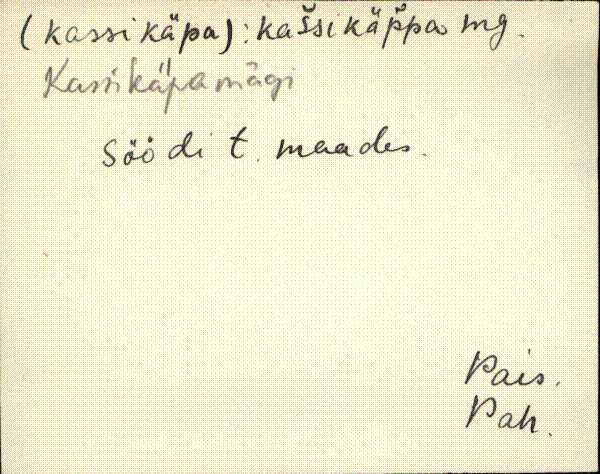 (kassikäpa): kaš̀sikäp̀pa mg.
Kassikäpamägi
Söödi t. maades.
Pais.
Pah.